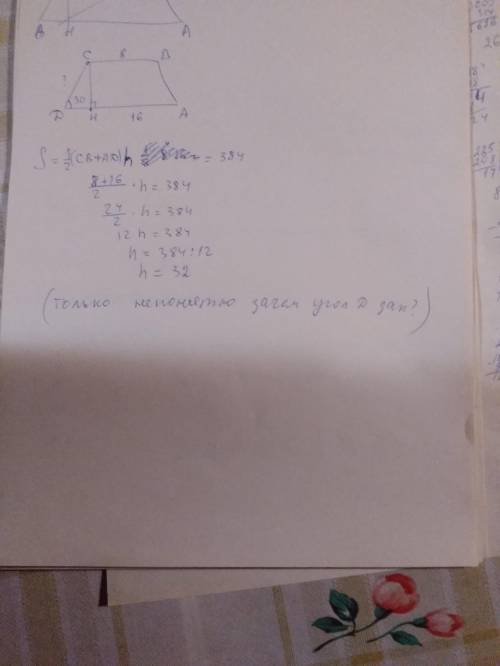 В Н А
С 8 В
?
D 30 Н 16 А
S = ½(СВ+АD)h = 384
8+16/2 · h = 384
24/2 · h = 384
12 h = 384
h = 384:12
h = 32
(только непонятно зачем угол D дан?)